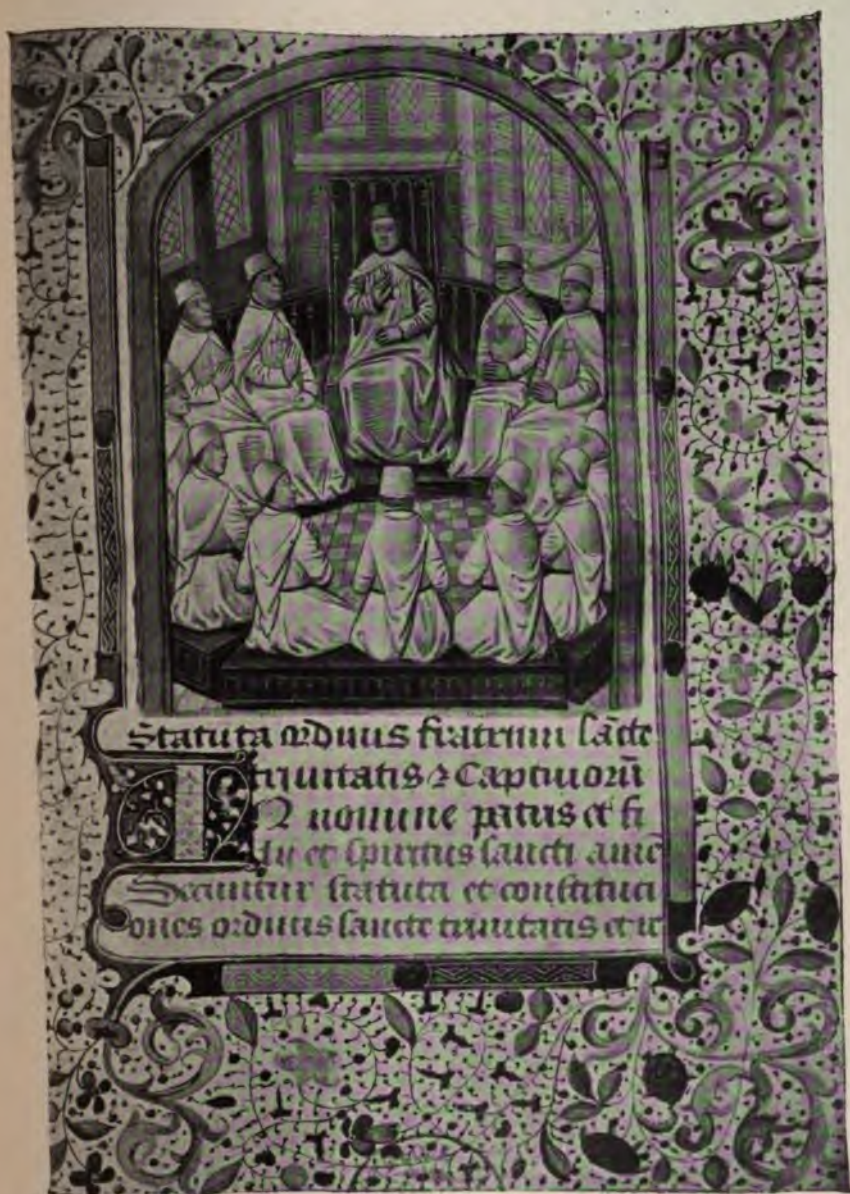 Statuta ordinis fratrum sācte
trinitatis ⁊ Captiuorū
In nomine patris et fi
lii et spiritus sancti amē
Secuntur statuta et constituci
ones ordinis sancte trinitatis et